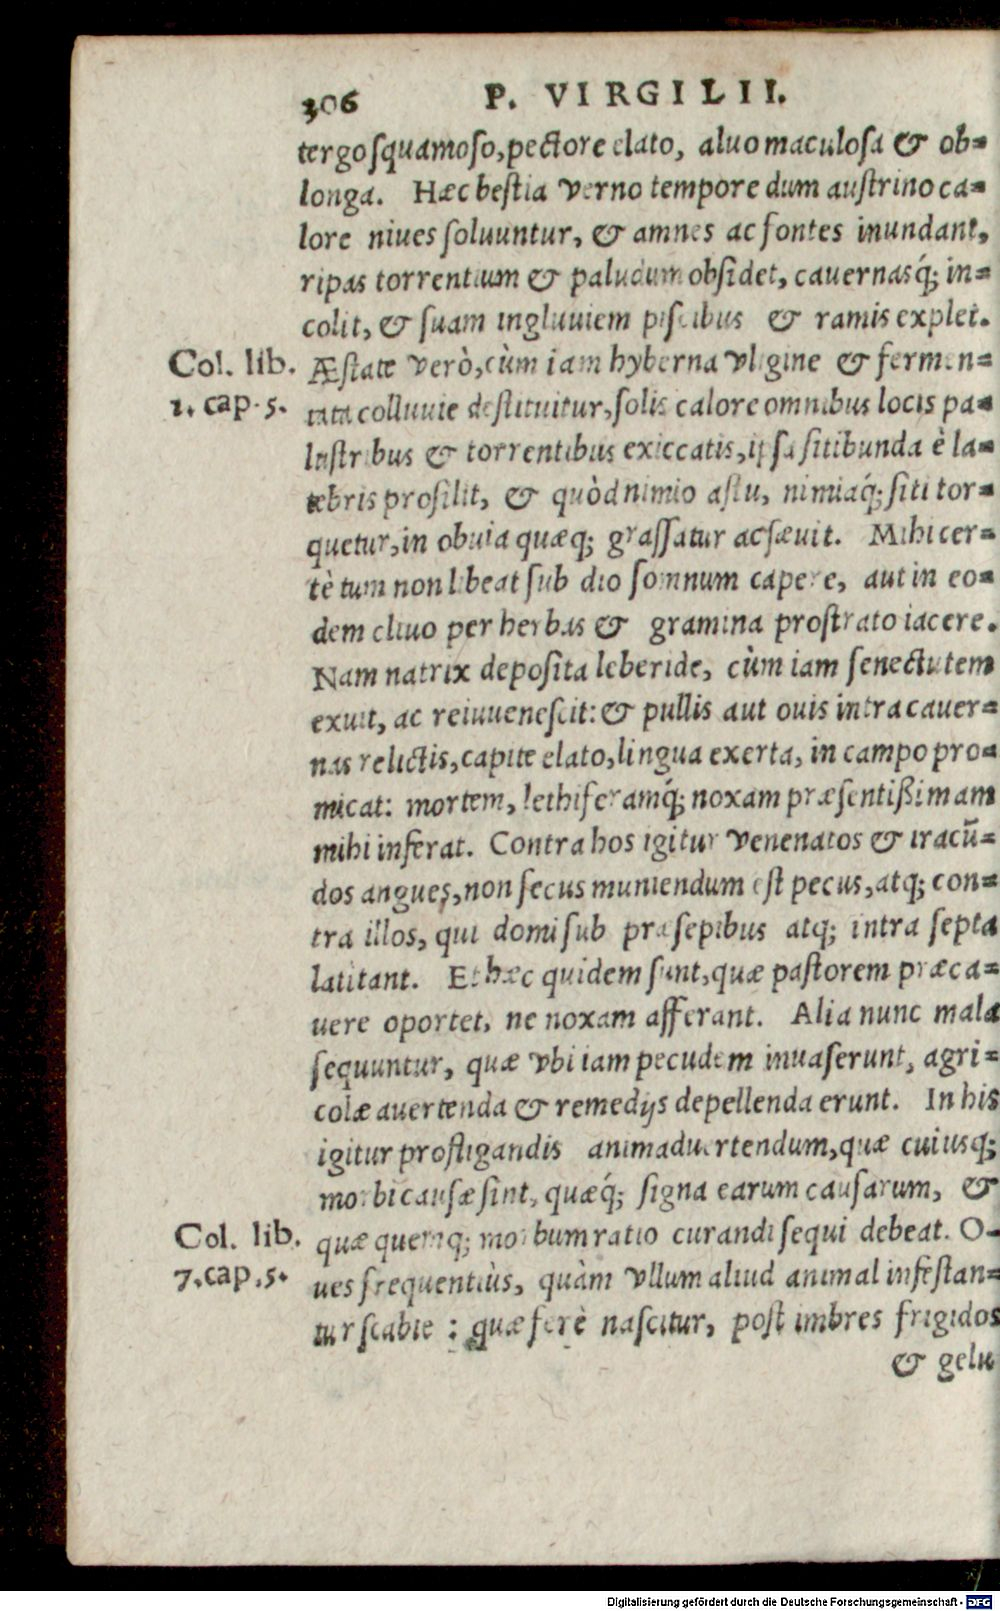 306 P. VIRGILII.
tergo squamoso, pectore elato, aluo maculosa & ob-
longa. Hæc bestia verno tempore dum austrino ca-
lore niues soluuntur, & amnes ac fontes inundant,
ripas torrentium & paludum obsidet, cauernasq́; in-
colit, & suam ingluuiem piscibus & ramis explet.
Col. lib.
1. cap. 5.
Æstate verò, cùm iam hyberna vligine & fermen-
tata colluuie destituitur, solis calore omnibus locis pa-
lustribus & torrentibus exiccatis, ipsa sitibunda è la-
tebris prosilit, & quòd nimio æstu, nimiaq́; siti tor-
quetur, in obuia quæq; grassatur ac sæuit. Mihi cer-
tè tum non libeat sub dio somnum capere, aut in eo-
dem cliuo per herbas & gramina prostrato iacere.
Nam natrix deposita leberide, cùm iam senectutem
exuit, ac reiuuenescit: & pullis aut ouis intra cauer-
nas relictis, capite elato, lingua exerta, in campo pro-
micat: mortem, lethiferamq́; noxam præsentißimam
mihi inferat. Contra hos igitur venenatos & iracū-
dos angues, non secus muniendum est pecus, atq; con-
tra illos, qui domi sub præsepibus atq; intra septa
latitant. Et hæc quidem sunt, quæ pastorem præca-
uere oportet, ne noxam afferant. Alia nunc mala
sequuntur, quæ vbi iam pecudem inuaserunt, agri-
colæ auertenda & remedijs depellenda erunt. In his
igitur profligandis animaduertendum, quæ cuiusq;
morbi causæ sint, quæq́; signa earum causarum, &
Col. lib.
7. cap. 5.
quæ quemq; morbum ratio curandi sequi debeat. O-
ues frequentiùs, quàm vllum aliud animal infestan-
tur scabie : quæ ferè nascitur, post imbres frigidos
& gelu
Digitalisierung gefördert durch die Deutsche Forschungsgemeinschaft - DFG